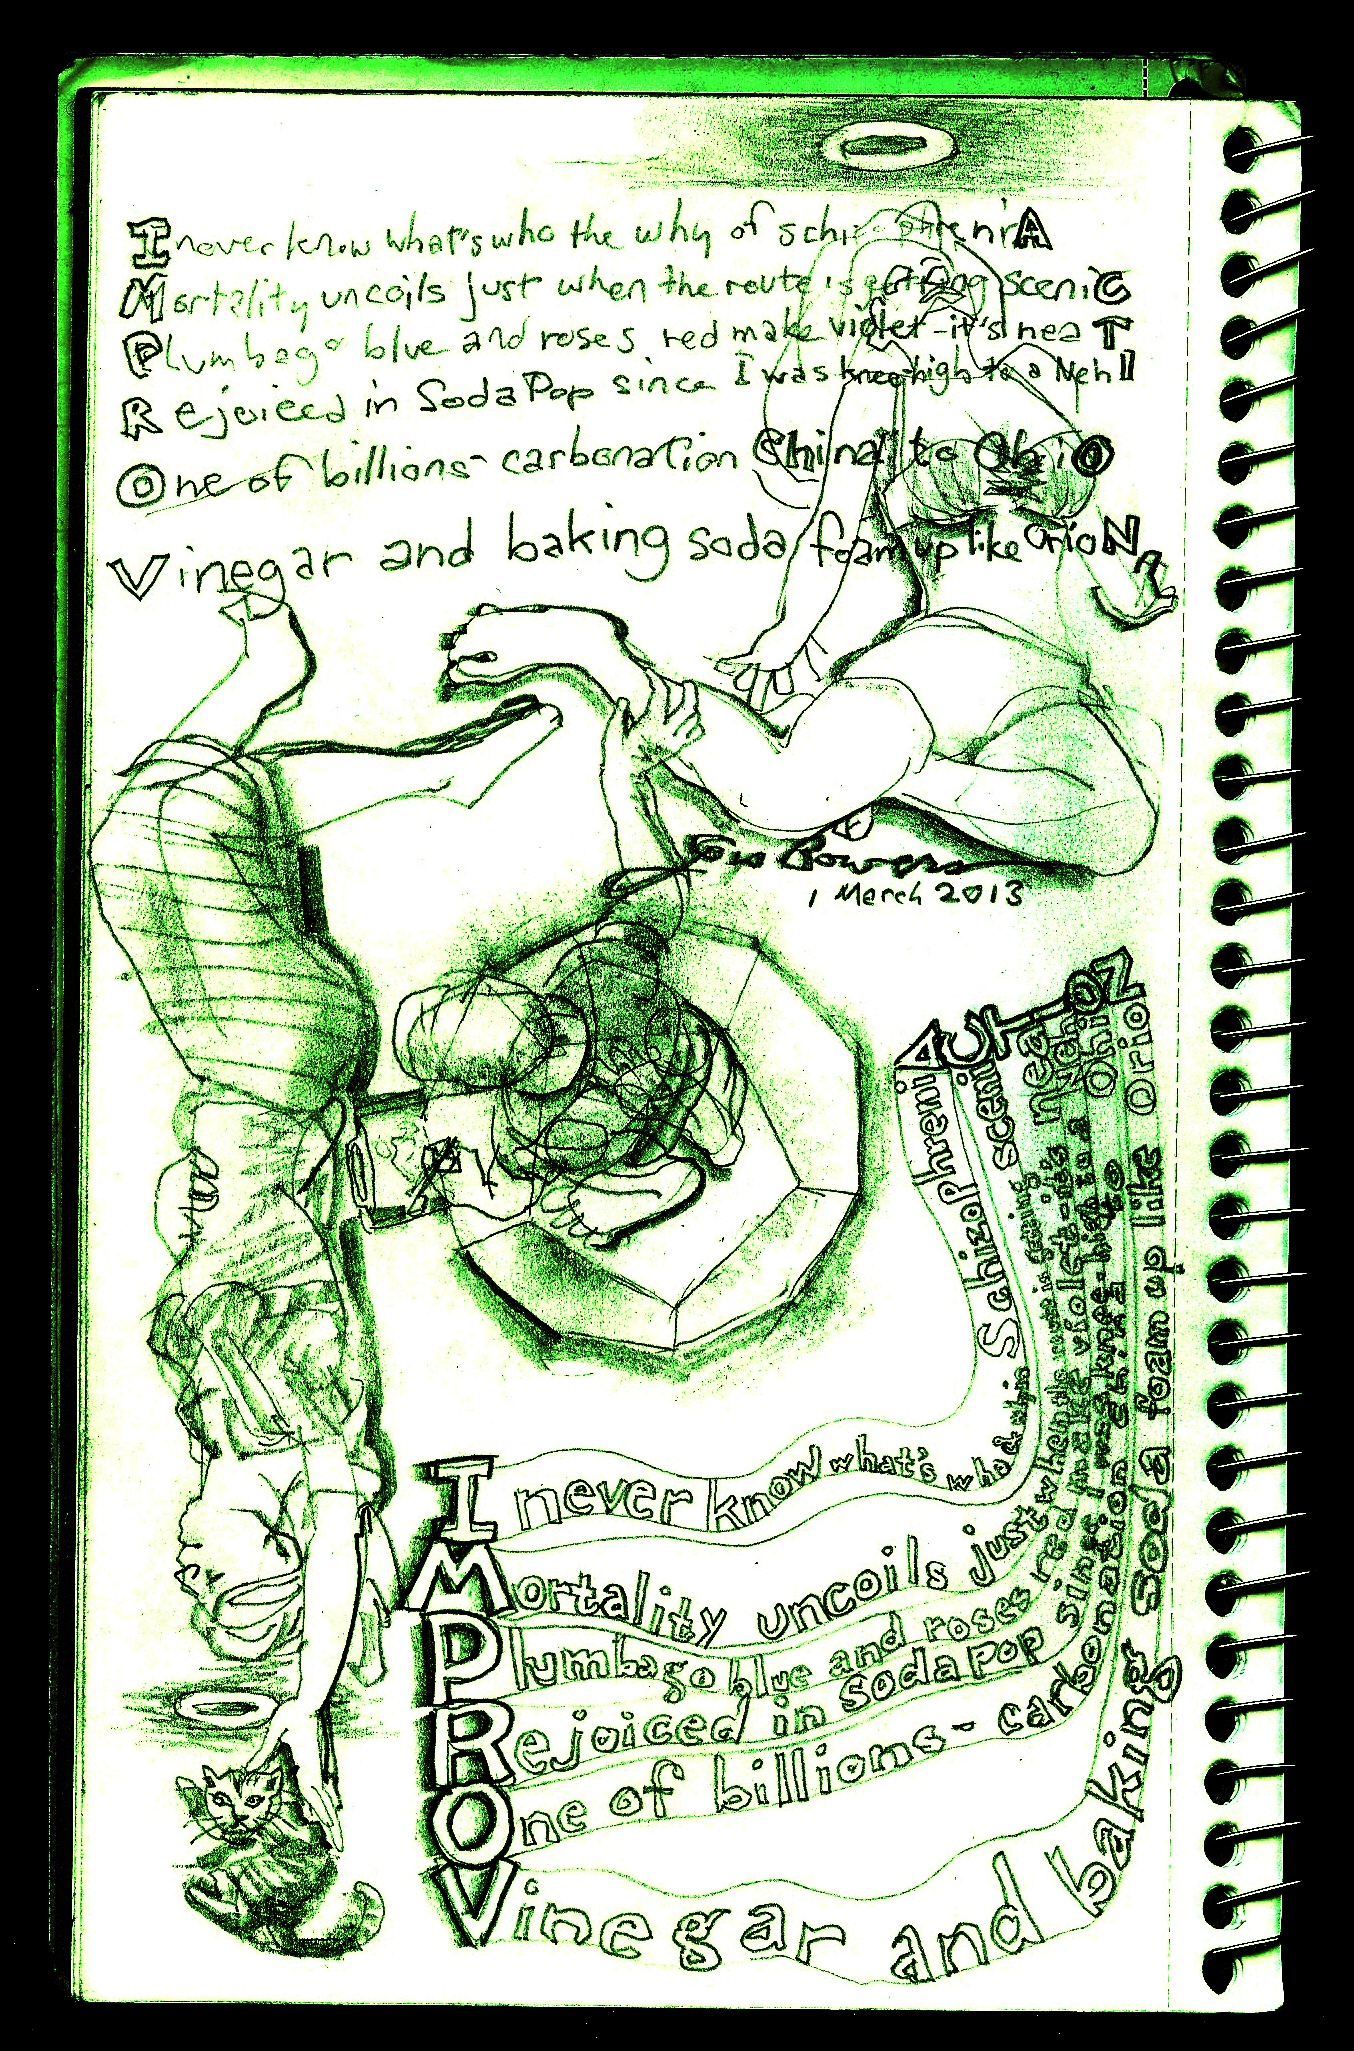 I never know what's who the why of schizophreniA
Mortality uncoils just when the route is getting sceniC
Plumbago blue and roses red make violet - it's neaT
Rejoiced in Soda Pop since I was knee-high to a NehI
One of billions - carbonation China to OhiO
Vinegar and baking soda foam up like OrioN
Bowers
1 March 2013
ACTION
I never know what's who the why Schizophreni
Mortality uncoils just when the route is getting sceni
Plumbago blue and roses red make violet - it's nea
Rejoiced in soda pop since I was knee-high to a Neh
One of billions - carbonation China to Ohi
Vinegar and baking soda foam up like Orio